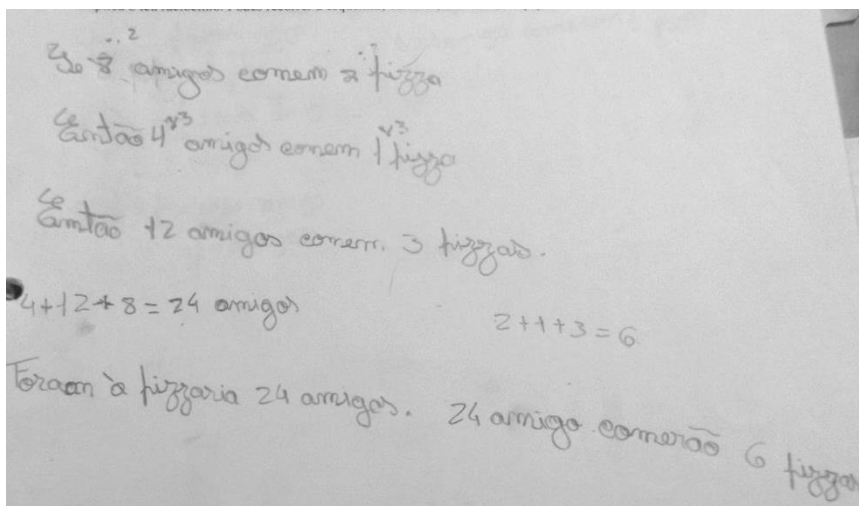 Se 8 :2 amigos comem 2 :2 pizza
Então 4 x3 amigos comem 1 x3 pizza
Então 12 amigos comem 3 pizzas.
4+12+8=24 amigos
2+1+3=6
Foram à pizzaria 24 amigos. 24 amigo comerão 6 pizzas